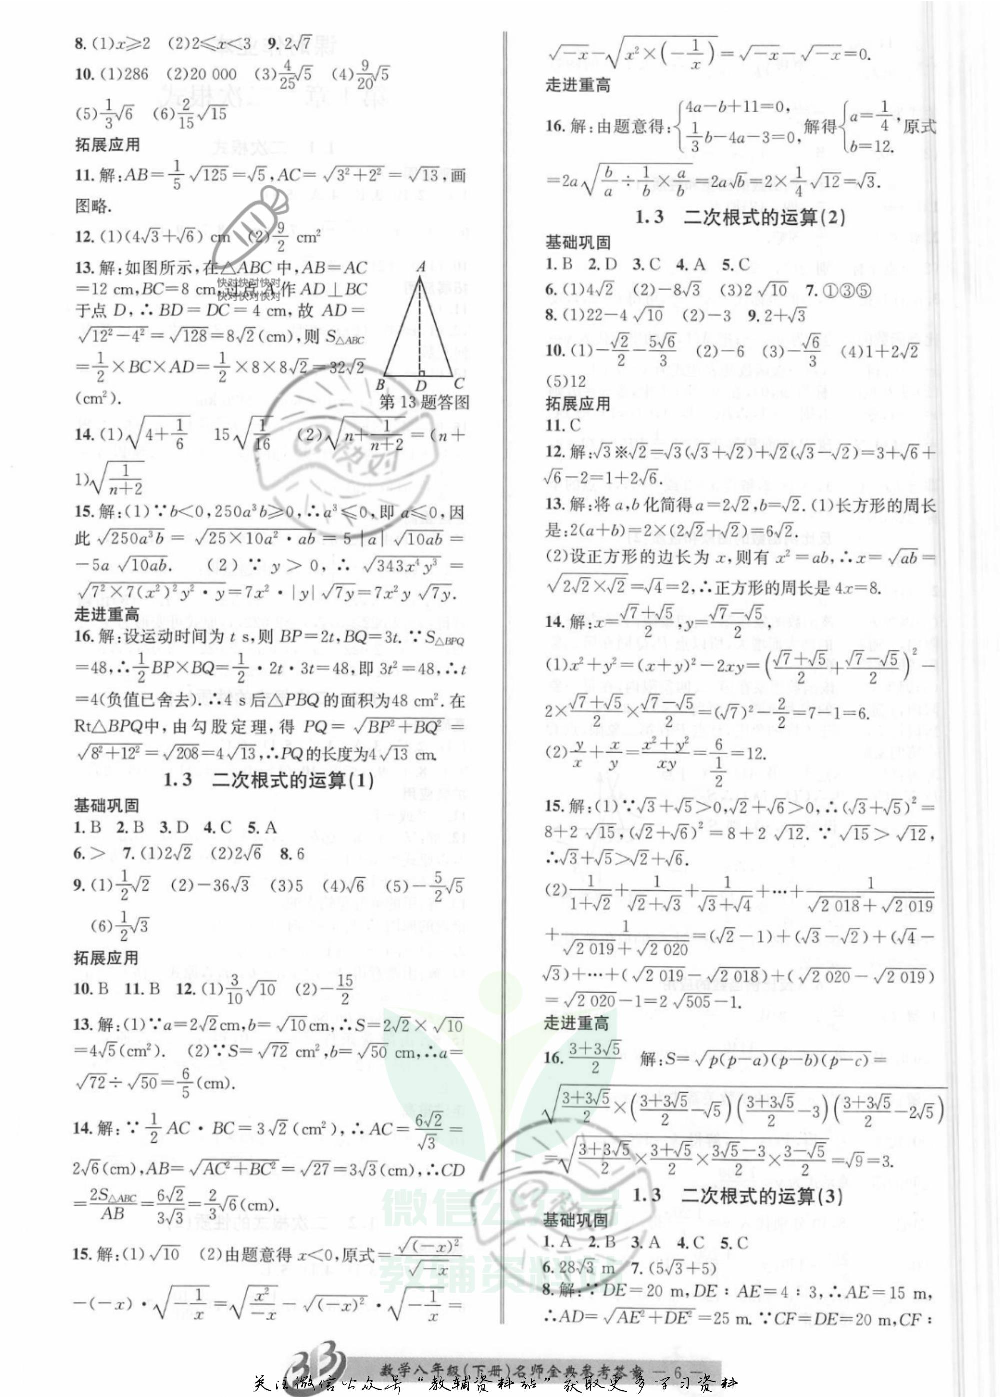 8. (1)x≥2 (2)2≤x<3 9. 2√7
10. (1)286 (2)20 000 (3)4/25√5 (4)9/20√5
(5)1/3√6 (6)2/15√15
拓展应用
11. 解:AB=1/5√125=√5,AC=√(3²+2²)=√13,画
图略.
12. (1)(4√3+√6) cm (2)9/2 cm²
13. 解:如图所示,在△ABC中,AB=AC
=12 cm,BC=8 cm,过点A作AD⊥BC
于点D,∴BD=DC=4 cm,故AD=
√(12²-4²)=√128=8√2(cm),则S△ABC
=1/2×BC×AD=1/2×8×8√2=32√2
(cm²).
A
B D C
第13题答图
14. (1)√(4+1/6) 15√(1/16) (2)√(n+1/(n+2))=(n+
1)√(1/(n+2))
15. 解:(1)∵b<0,250a³b≥0,∴a³≤0,即a≤0,因
此√(250a³b)=√(25×10a²·ab)=5|a|√(10ab)=
-5a√(10ab). (2)∵y>0,∴√(343x⁴y³)=
√(7²×7(x²)²y²·y)=7x²·|y|√(7y)=7x²y√(7y).
走进重高
16. 解:设运动时间为t s,则BP=2t,BQ=3t.∵S△BPQ
=48,∴1/2BP×BQ=1/2·2t·3t=48,即3t²=48,∴t
=4(负值已舍去).∴4 s后△PBQ的面积为48 cm².在
Rt△BPQ中,由勾股定理,得PQ=√(BP²+BQ²)=
√(8²+12²)=√208=4√13,∴PQ的长度为4√13 cm.
1.3 二次根式的运算(1)
基础巩固
1. B 2. B 3. D 4. C 5. A
6. > 7. (1)2√2 (2)2√6 8. 6
9. (1)1/2√2 (2)-36√3 (3)5 (4)√6 (5)-5/2√5
(6)1/2√3
拓展应用
10. B 11. B 12. (1)3/10√10 (2)-15/2
13. 解:(1)∵a=2√2cm,b=√10cm,∴S=2√2×√10
=4√5(cm²). (2)∵S=√72 cm²,b=√50 cm,∴a=
√72÷√50=6/5(cm).
14. 解:∵1/2AC·BC=3√2(cm²),∴AC=6√2/√3=
2√6(cm),AB=√(AC²+BC²)=√27=3√3(cm),∴CD
=2S△ABC/AB=6√2/3√3=2/3√6(cm).
15. 解:(1)√10 (2)由题意得x<0,原式=√(-x)²/√-x
-(-x)·√(-1/x)=√(x²/-x)-√(-x)²·√(-1/x)=
√-x-√(x²×(-1/x))=√-x-√-x=0.
走进重高
16. 解:由题意得:{4a-b+11=0, 1/3b-4a-3=0,解得{a=1/4, b=12.原式
=2a√(b/a÷1/b×a/b)=2a√b=2×1/4√12=√3.
1.3 二次根式的运算(2)
基础巩固
1. B 2. D 3. C 4. A 5. C
6. (1)4√2 (2)-8√3 (3)2√10 7. ①③⑤
8. (1)22-4√10 (2)-3 9. 2+√3
10. (1)-√2/2-5√6/3 (2)-6 (3)-√6/3 (4)1+2√2
(5)12
拓展应用
11. C
12. 解:√3※√2=√3(√3+√2)+√2(√3-√2)=3+√6+
√6-2=1+2√6.
13. 解:将a,b化简得a=2√2,b=√2.(1)长方形的周长
是:2(a+b)=2×(2√2+√2)=6√2.
(2)设正方形的边长为x,则有x²=ab,∴x=√(ab)=
√(2√2×√2)=√4=2,∴正方形的周长是4x=8.
14. 解:x=(√7+√5)/2,y=(√7-√5)/2,
(1)x²+y²=(x+y)²-2xy=((√7+√5)/2+(√7-√5)/2)²-
2×(√7+√5)/2×(√7-√5)/2=(√7)²-2/2=7-1=6.
(2)y/x+x/y=(x²+y²)/xy=6/(1/2)=12.
15. 解:(1)∵√3+√5>0,√2+√6>0,∴(√3+√5)²=
8+2√15,(√2+√6)²=8+2√12.∵√15>√12,
∴√3+√5>√2+√6.
(2)1/(1+√2)+1/(√2+√3)+1/(√3+√4)+…+1/(√2 018+√2 019)
+1/(√2 019+√2 020)=(√2-1)+(√3-√2)+(√4-
√3)+…+(√2 019-√2 018)+(√2 020-√2 019)
=√2 020-1=2√505-1.
走进重高
16. (3+3√5)/2 解:S=√(p(p-a)(p-b)(p-c))=
√((3+3√5)/2×((3+3√5)/2-√5)((3+3√5)/2-3)((3+3√5)/2-2√5))
=√((3+3√5)/2×(3+√5)/2×(3√5-3)/2×(3-√5)/2)=√9=3.
1.3 二次根式的运算(3)
基础巩固
1. A 2. B 3. A 4. C 5. C
6. 28√3 m 7. (5√3+5)
8. 解:∵DE=20 m,DE:AE=4:3,∴AE=15 m,
∴AD=√(AE²+DE²)=25 m.∵CF=DE=20 m,CF:
数学八年级(下册)名师金典参考答案 — 6 —
关注微信公众号"教辅资料站"获取更多学习资料